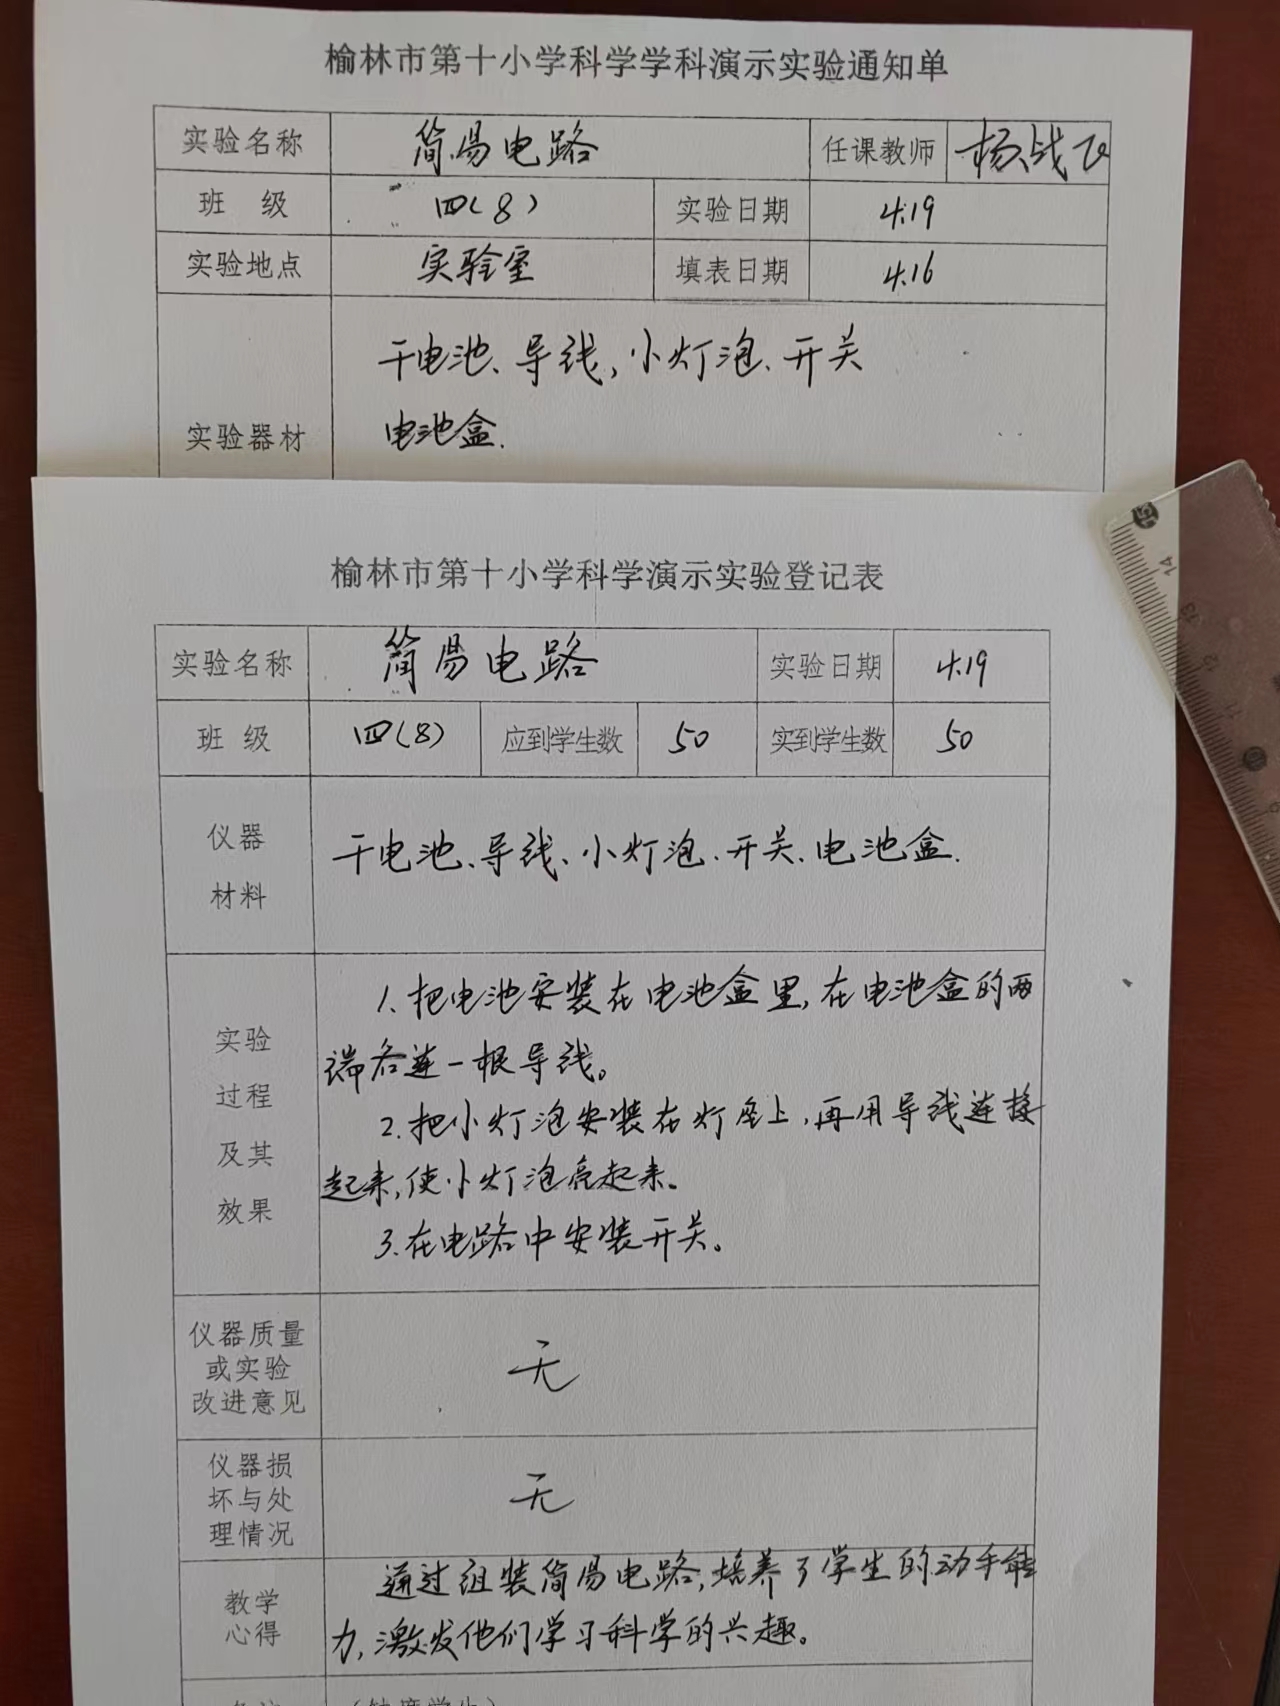 榆林市第十小学科学学科演示实验通知单
实验名称 简易电路 任课教师 杨战飞
班 级 四(8) 实验日期 4.19
实验地点 实验室 填表日期 4.16
干电池、导线,小灯泡、开关
实验器材 电池盒.
榆林市第十小学科学演示实验登记表
实验名称 简易电路 实验日期 4.19
班 级 四(8) 应到学生数 50 实到学生数 50
仪器
材料
干电池、导线、小灯泡、开关、电池盒.
实验
过程
及其
效果
1.把电池安装在电池盒里,在电池盒的两
端各连一根导线。
2.把小灯泡安装在灯座上,再用导线连接
起来,使小灯泡亮起来。
3.在电路中安装开关。
仪器质量
或实验
改进意见
无
仪器损
坏与处
理情况
无
教学
心得
通过组装简易电路,培养了学生的动手能
力,激发他们学习科学的兴趣。
15 14 13 12 11 10 9